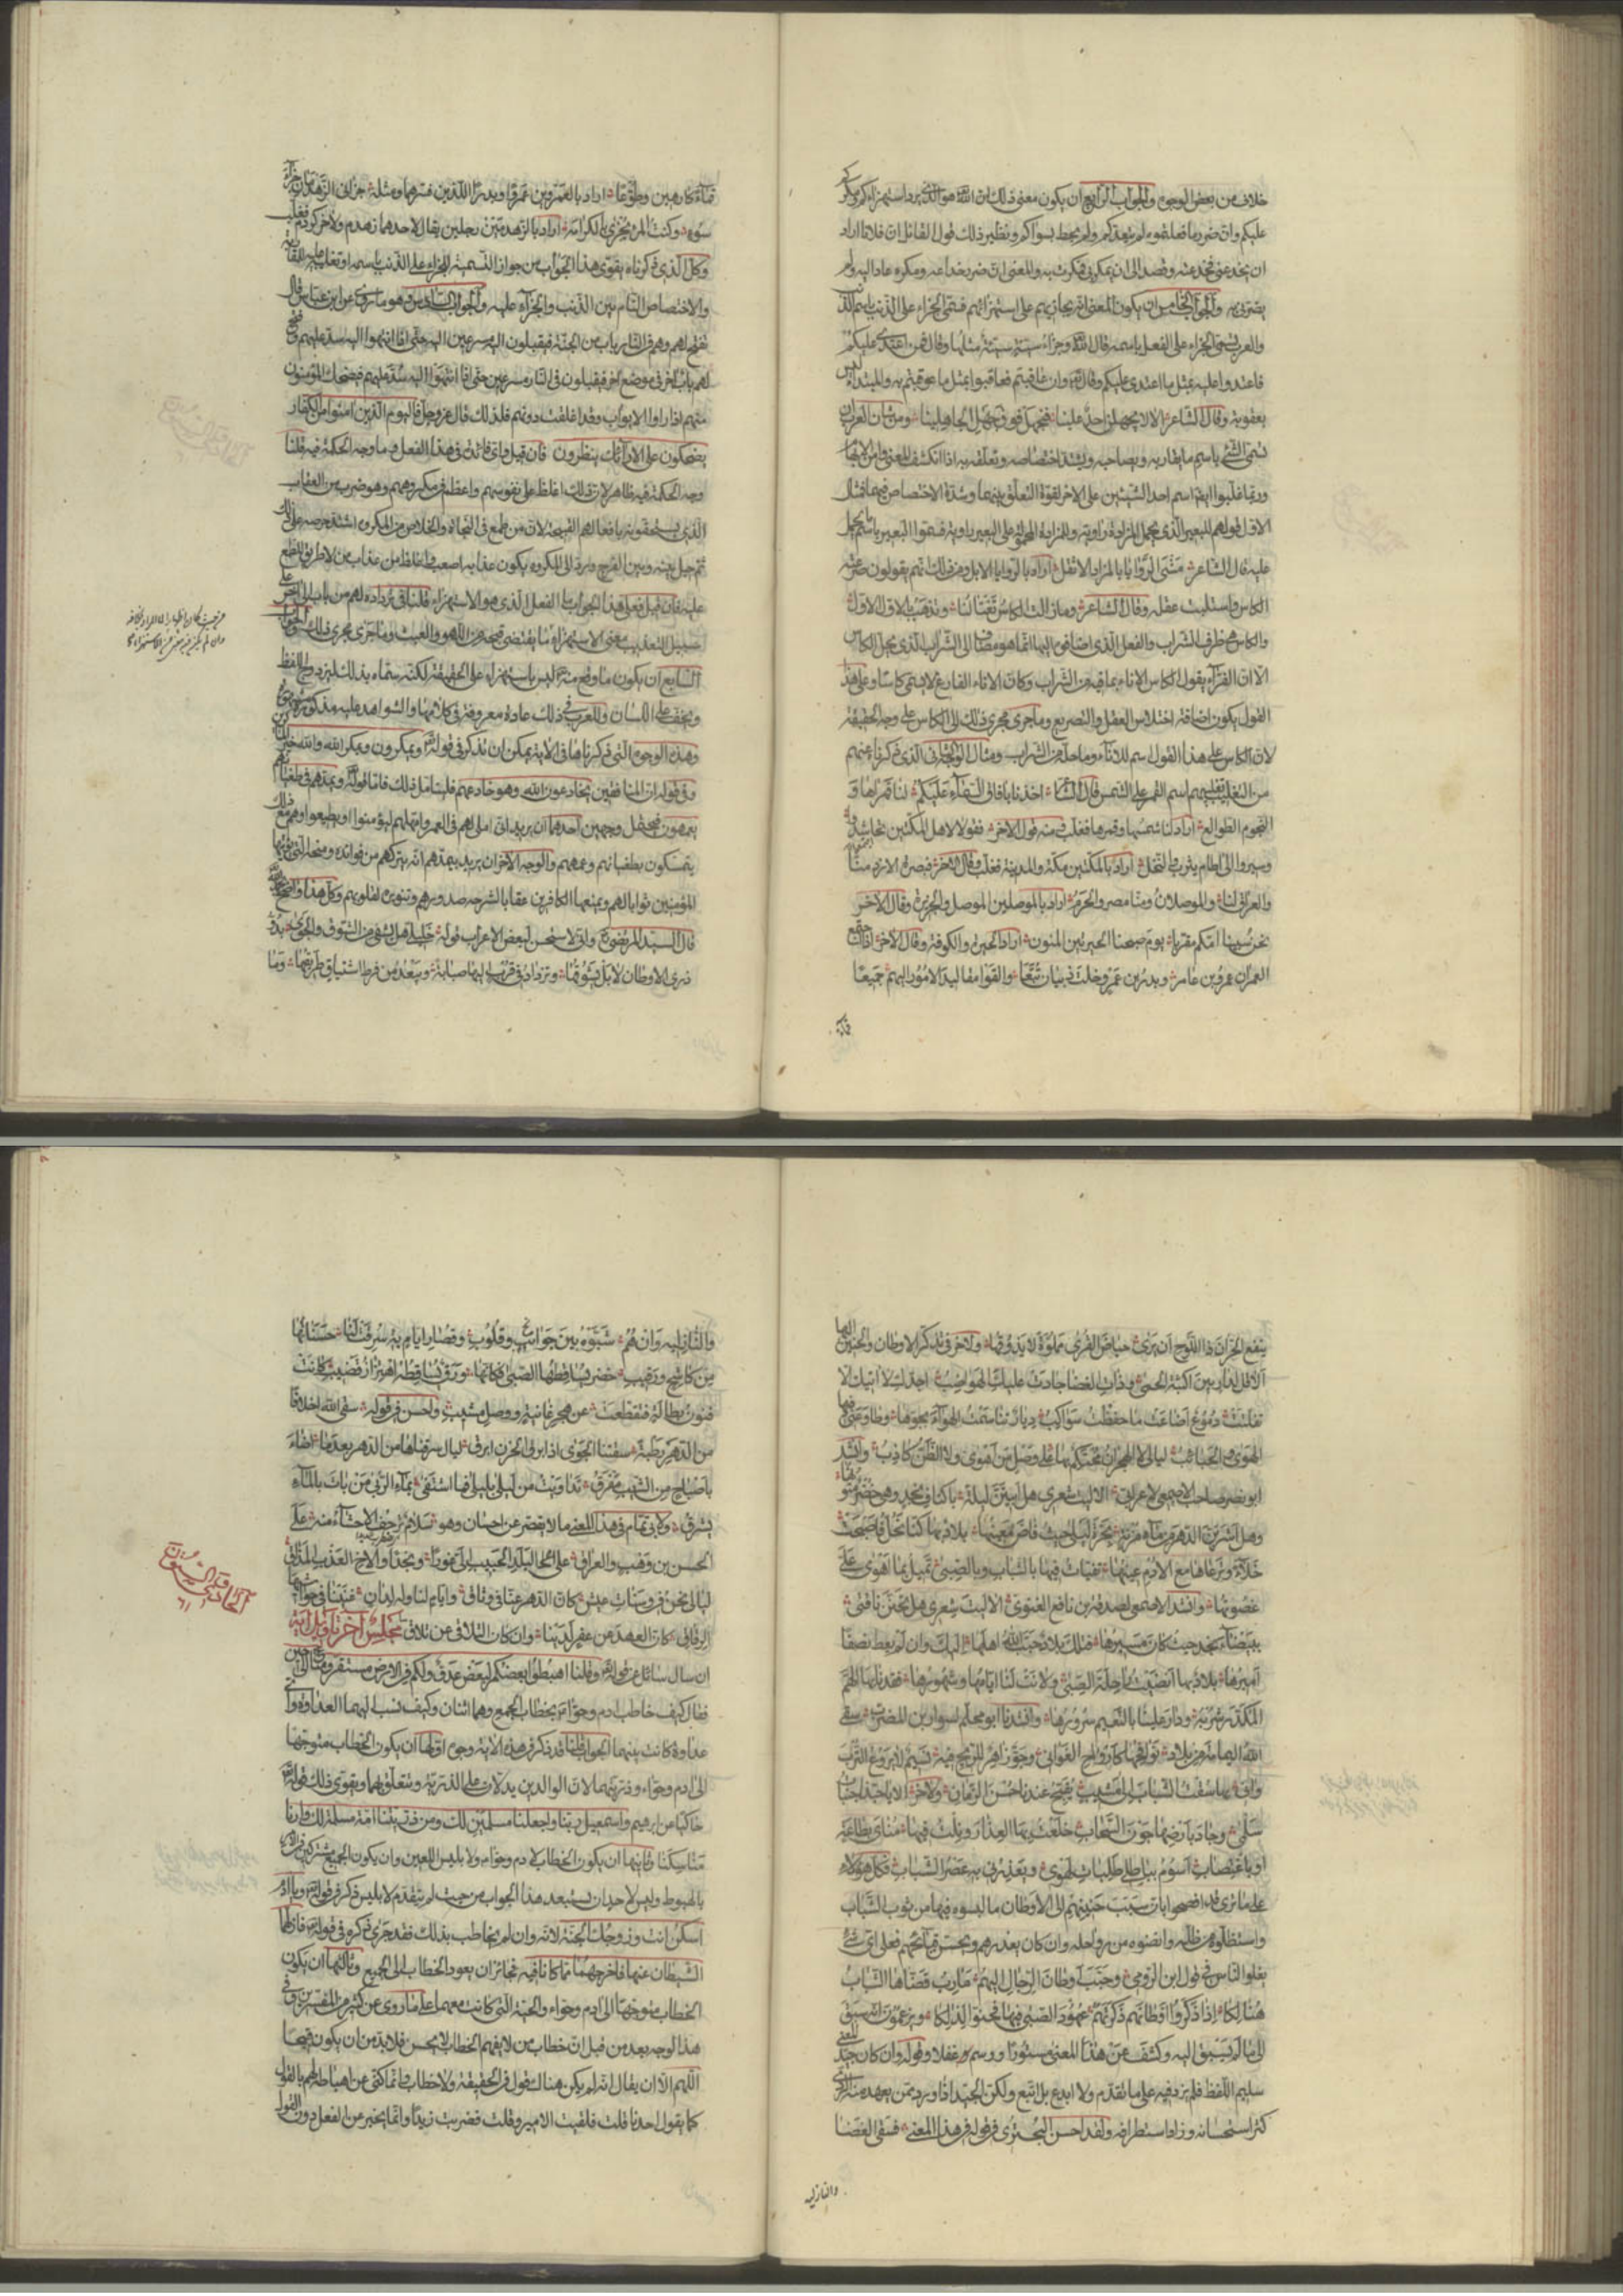 خلاف من بعض الوجوه والجواب الرابع ان يكون معنى ذلك ان الله هو الذي يرد استهزاءكم ومكركم
عليكم وان ضرر ما فعلتموه لم يتعدكم ولم يحط بسواكم ونظير ذلك قول القائل ان فلانا اراد
ان يخدعني فخدعته وقصد الى ان يمكر بي فمكرت به والمعنى ان ضرر خداعه ومكره عاد اليه ولم
يضرني به والجواب الخامس ان يكون المعنى انه يجازيهم على استهزائهم فسمى الجزاء على الذنب باسم الذنب
والعرب تسمى الجزاء على الفعل باسمه قال الله وجزاء سيئة سيئة مثلها وقال فمن اعتدى عليكم
فاعتدوا عليه بمثل ما اعتدى عليكم وقال وان عاقبتم فعاقبوا بمثل ما عوقبتم به والمبتداء ليس
بعقوبة وقال الشاعر الا لا يجهلن احد علينا فنجهل فوق جهل الجاهلينا ومن شان العرب ان
تسمى الشئ باسم ما يقاربه ويصاحبه ويشتد اختصاصه وتعلقه به اذا انكشف المعنى وامن الابهام
وربما غلبوا ايضا اسم احد الشيئين على الاخر لقوة التعلق بينهما وشدة الاختصاص فيهما فمثال
الاول قولهم للبعير الذي يحمل المزادة راوية وللمزادة المحمولة على البعير راوية فسموا البعير باسم ما يحمل
عليه قال الشاعر مشى الروايا بالمزاد الاثقل اراد بالروايا الابل ومن ذلك انهم يقولون صرعته
الكاس واستلبت عقله وقال الشاعر وما زالت الكاس تغتالنا وتذهب بالاول الاول
والكاس هي ظرف الشراب والفعل الذي اضافوه اليها انما هو مضاف الى الشراب الذي يحل الكاس
الا ان الفراء يقول الكاس الاناء بما فيه من الشراب وكان الاناء الفارغ لا يسمى كاسا وعلى هذا
القول يكون اضافة اختلاس العقل والتصريع وما جرى مجرى ذلك الى الكاس على وجه الحقيقة
لان الكاس على هذا القول اسم للاناء وما حله من الشراب ومثال الوجه الثاني الذي ذكرناه عنهم
من التغليب تغليبهم اسم القمر على الشمس قال الشاعر اخذنا بافاق السماء عليكم لنا قمراها و
النجوم الطوالع اراد لنا شمسها وقمرها فغلب ومنه قول الاخر فقولا لاهل المكتين تحاشدوا
وسيروا الى اطام يثرب والنخل اراد بالمكتين مكة والمدينة فغلب وقال الاخر فبصرة الازد منا
والعراق لنا والموصلان ومنا مصر والحرم اراد بالموصلين الموصل والجزيرة وقال الاخر
نحن سبينا امكم مقربا يوم صبحنا الحيرتين المنون اراد الحيرة والكوفة وقال الاخر اذا اجتمع
العمران عمرو بن عامر وبدر بن عمرو خلت ذبيان تبعا والقوا مقاليد الامور اليهم جميعا
قماءة كارهين وطوعا اراد بالعمرين عمرا وبدرا اللذين فسرهما ومثله جزاني الزهدمان جزاء
سوء وكنت المرء يجزى بالكرامة اراد بالزهدمين رجلين يقال لاحدهما زهدم ولاخر كردم فغلب
وكل الذي ذكرناه يقوى هذا الجواب من جواز التسمية للجزاء على الذنب باسمه او تغليبه عليه للمقاربة
والاختصاص التام بين الذنب والجزاء عليه والجواب السادس وهو ما روي عن ابن عباس قال
يفتح لهم وهم في النار باب من الجنة فيقبلون اليه مسرعين اليه حتى اذا انتهوا اليه سد عليهم وفتح
لهم باب اخر في موضع اخر فيقبلون في النار مسرعين حتى اذا انتهوا اليه سد عليهم فيضحك المؤمنون
منهم اذا راوا الابواب وقد اغلقت دونهم فلذلك قال عز وجل فاليوم الذين امنوا من الكفار
يضحكون على الارائك ينظرون فان قيل واي فائدة في هذا الفعل وما وجه الحكمة فيه قلنا
وجه الحكمة فيه ظاهر لان ذلك اغلظ على نفوسهم واعظم في مكروههم وهو ضرب من العقاب
الذي يستحقونه بافعالهم القبيحة لان من طمع في النجاة والخلاص من المكروه اشتد حرصه على ذلك
ثم حيل بينه وبين الفرج ورد الى المكروه يكون عذابه اصعب واغلظ من عذاب من لا طريق للطمع
عليه فان قيل فعلى هذا الجواب ما الفعل الذي هو الاستهزاء قلنا في ترداده لهم من باب الى اخر على
سبيل التعذيب معنى الاستهزاء بما يقتضي قبحه من اللهو والعبث وما جرى مجرى ذلك والجواب
السابع ان يكون ما وقع منه ليس باستهزاء على الحقيقة لكنه سماه بذلك ليزدوج اللفظ
ويخف على اللسان وللعرب في ذلك عادة معروفة في كلامها والشواهد عليه مذكورة مشهورة
وهذه الوجوه التي ذكرناها في الاية يمكن ان تذكر في قوله ويمكرون ويمكر الله والله خير الماكرين
وفي قوله ان المنافقين يخادعون الله وهو خادعهم فليتامل ذلك فاما قوله ويمدهم في طغيانهم
يعمهون فيحتمل وجهين احدهما ان يريد اني املي لهم في العمر وامهلهم ليؤمنوا او يطيعوا وهم مع ذلك
يتمسكون بطغيانهم وعمههم والوجه الاخر ان يريد بيمدهم انه يتركهم من فوائده ومنحه التي يؤتيها
المؤمنين ثوابا لهم ويمنعها الكافرين عقابا لشرحه صدورهم وتنويره لقلوبهم وكل هذا واضح بحمد الله
قال السيد المرتضى واني لاستحسن لبعض الاعراب قوله خليلي هل يشفي من الشوق والجوى بدو
ذرى الاوطان لا بل يشوقها وتزداد في قرب اليها صبابة ويبعد من فرط اشتياق طريقها وما
ينفع الحران ذا اللوح ان يرى حياض القرى مملوة لا يذوقها ولاخر في تذكر الاوطان والحنين اليها
الا قل لدار بين اكثبة الحمى وذات الغضا جادت عليك الهواضب اجدك لا اتيك الا
تفلتت دموع اضاعت ما حفظت سواكب ديار تناسمت الهواء بجوها وطاوعني فيها
الهوى والحبائب ليالي لا الهجران محتكم بها على وصل من اهوى ولا الظن كاذب وانشد
ابو نصر صاحب الاصمعي لاعرابي الا ليت شعري هل ابيتن ليلة باكناف نجد وهي خضر متونها
وهل اشربن الدهر من ماء مزنة بحرة ليلى حيث فاض معينها بلاد بها كنا نحل فاصبحت
خلاء ترعاها مع الادم عينها تفيات فيها بالشباب وبالصبى تميل بما اهوى على
غصونها وانشد الاصمعي لصدقة بن نافع الغنوي الا ليت شعري هل تحنن ناقتي
ببيضاء نجد حيث كان مسيرها فتلك بلاد حبب الله اهلها اليك وان لم يعط نصفا
اميرها بلاد بها انضيت راحلة الصبى ولانت لنا ايامها وشهورها فقد نابها الهم
المكدر شربه ودار علينا بالنعيم سرورها وانشدنا ابو محلم لسوار بن المضرب سقى
الله اليمامة من بلاد نوافحها كارواح الغواني وجو زاهر للريح فيه نسيم لا يروع الترب
وان بها سقت الشباب الى مشيب يقبح عندنا حسن الزمان ولاخر الا يا حبذا جنبات
سلمى وجاد بارضها جون السحاب خلعت بها العذار ونلت فيها مناي بطاعة
او باغتصاب اسوم بباطلي طلبات لهوي ويعذرني به عصر الشباب فكل هولاء
على ما ترى قد افصحوا بان سبب حنينهم الى الاوطان ما لبسوه فيها من ثوب الشباب
واستظلوه من ظله وانضوه من رواحله وان كان يعذرهم ويحسن قبائحهم فعلى اي شئ
يغلوا الناس في قول ابن الرومي وحبب اوطان الرجال اليهم مارب قضاها الشباب
هنالكا اذا ذكروا اوطانهم ذكرتهم عهود الصبى فيها فحنوا لذلكا ويزعمون انه سبق
الى ما لم يسبق اليه وكشف عن هذا المعنى مستورا ووسم غفلا وقوله وان كان جيد المعنى
سليم اللفظ فلم يزد فيه على ما تقدم ولا ابدع بل اتبع ولكن الجيد اذا ورد ممن يعهد منه الردي
كثر استحسانه وزاد استطرافه ولقد احسن البحتري في قوله في هذا المعنى فسقى الغضا
والنازليه
والنازليه وان هم شبوه بين جوانح وقلوب وقصار ايام به سرقت لنا حسناتها
من كاشح ورقيب خضر تساقطها الصبى فكانها ورق يساقطها اهتزاز قضيب كانت
فنون بطالة فتقطعت عن هجر غانية ووصل مشيب واحسن في قوله سقى الله اخلافا
من الدهر رطبة سقتنا الجوى اذ ابرق الحزن ابرق ليال سرقناها من الدهر بعدما اضاء
باصباح من الشيب مفرق تداويت من ليلى بليلى فما اشتفى بماء الربى من بات بالماء
يشرق ولابي تمام في هذا المعنى ما لا يقصر عن احسان وهو سلام ترجف الاحشاء منه على
الحسن بن وهب والعراق على البلد الحبيب الي غورا ونجدا والاخ العذب المذاق
ليالي نحن في وسنات عيش كان الدهر عنها في وثاق وايام لنا وله لدان غنينا في حواشيها
الرقاق كان العهد من عفر لدينا وان كان التلاقي عن تلاق مجلس اخر تاويل اية
ان سال سائل عن قوله وقلنا اهبطوا بعضكم لبعض عدو ولكم في الارض مستقر ومتاع الى حين
فقال كيف خاطب ادم وحوا بخطاب الجمع وهما اثنان وكيف نسب اليهما العداوة واي
عداوة كانت بينهما الجواب قلنا قد ذكر في هذه الاية وجوه اولها ان يكون الخطاب متوجها
الى ادم وحواء وذريتهما لان الوالدين يدلان على الذرية ويتعلق بهما ويقوى ذلك قوله
حاكيا عن ابرهيم واسمعيل ربنا واجعلنا مسلمين لك ومن ذريتنا امة مسلمة لك وارنا
مناسكنا وثانيها ان يكون الخطاب لادم وحواء ولابليس اللعين وان يكون الجميع مشتركين في الامر
بالهبوط وليس لاحد ان يستبعد هذا الجواب من حيث لم يتقدم لابليس ذكر في قوله ويا ادم
اسكن انت وزوجك الجنة لانه وان لم يخاطب بذلك فقد جرى ذكره في قوله فازلهما
الشيطان عنها فاخرجهما مما كانا فيه فجائز ان يعود الخطاب الى الجميع وثالثها ان يكون
الخطاب متوجها الى ادم وحواء والحية التي كانت معهما على ما روى عن كثير من المفسرين وفي
هذا الوجه بعد من قبل ان خطاب من لا يفهم الخطاب لا يحسن فلا بد من ان يكون قبيحا
اللهم الا ان يقال انه لم يكن هناك قول في الحقيقة ولا خطاب وانما كنى عن اهباطه لهم بالقول
كما يقول احدنا قلت فلقيت الامير وقلت فضربت زيدا وانما يخبر عن الفعل دون القول